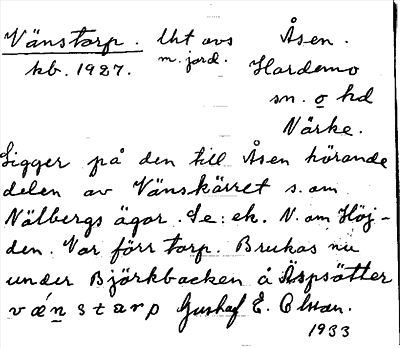 Vänstorp. Uht avs Åsen.
kb. 1927. m. jord. Hardemo
sn. o hd
Närke.
Ligger på den till Åsen hörande
delen av Vänskärret s. om
Nälbergs ägor. Se: ek. N. om Höj-
den. Var förr torp. Brukas nu
under Björkbacken å Äspsätter
vä́nstarp Gustaf E. Olsson.
1933